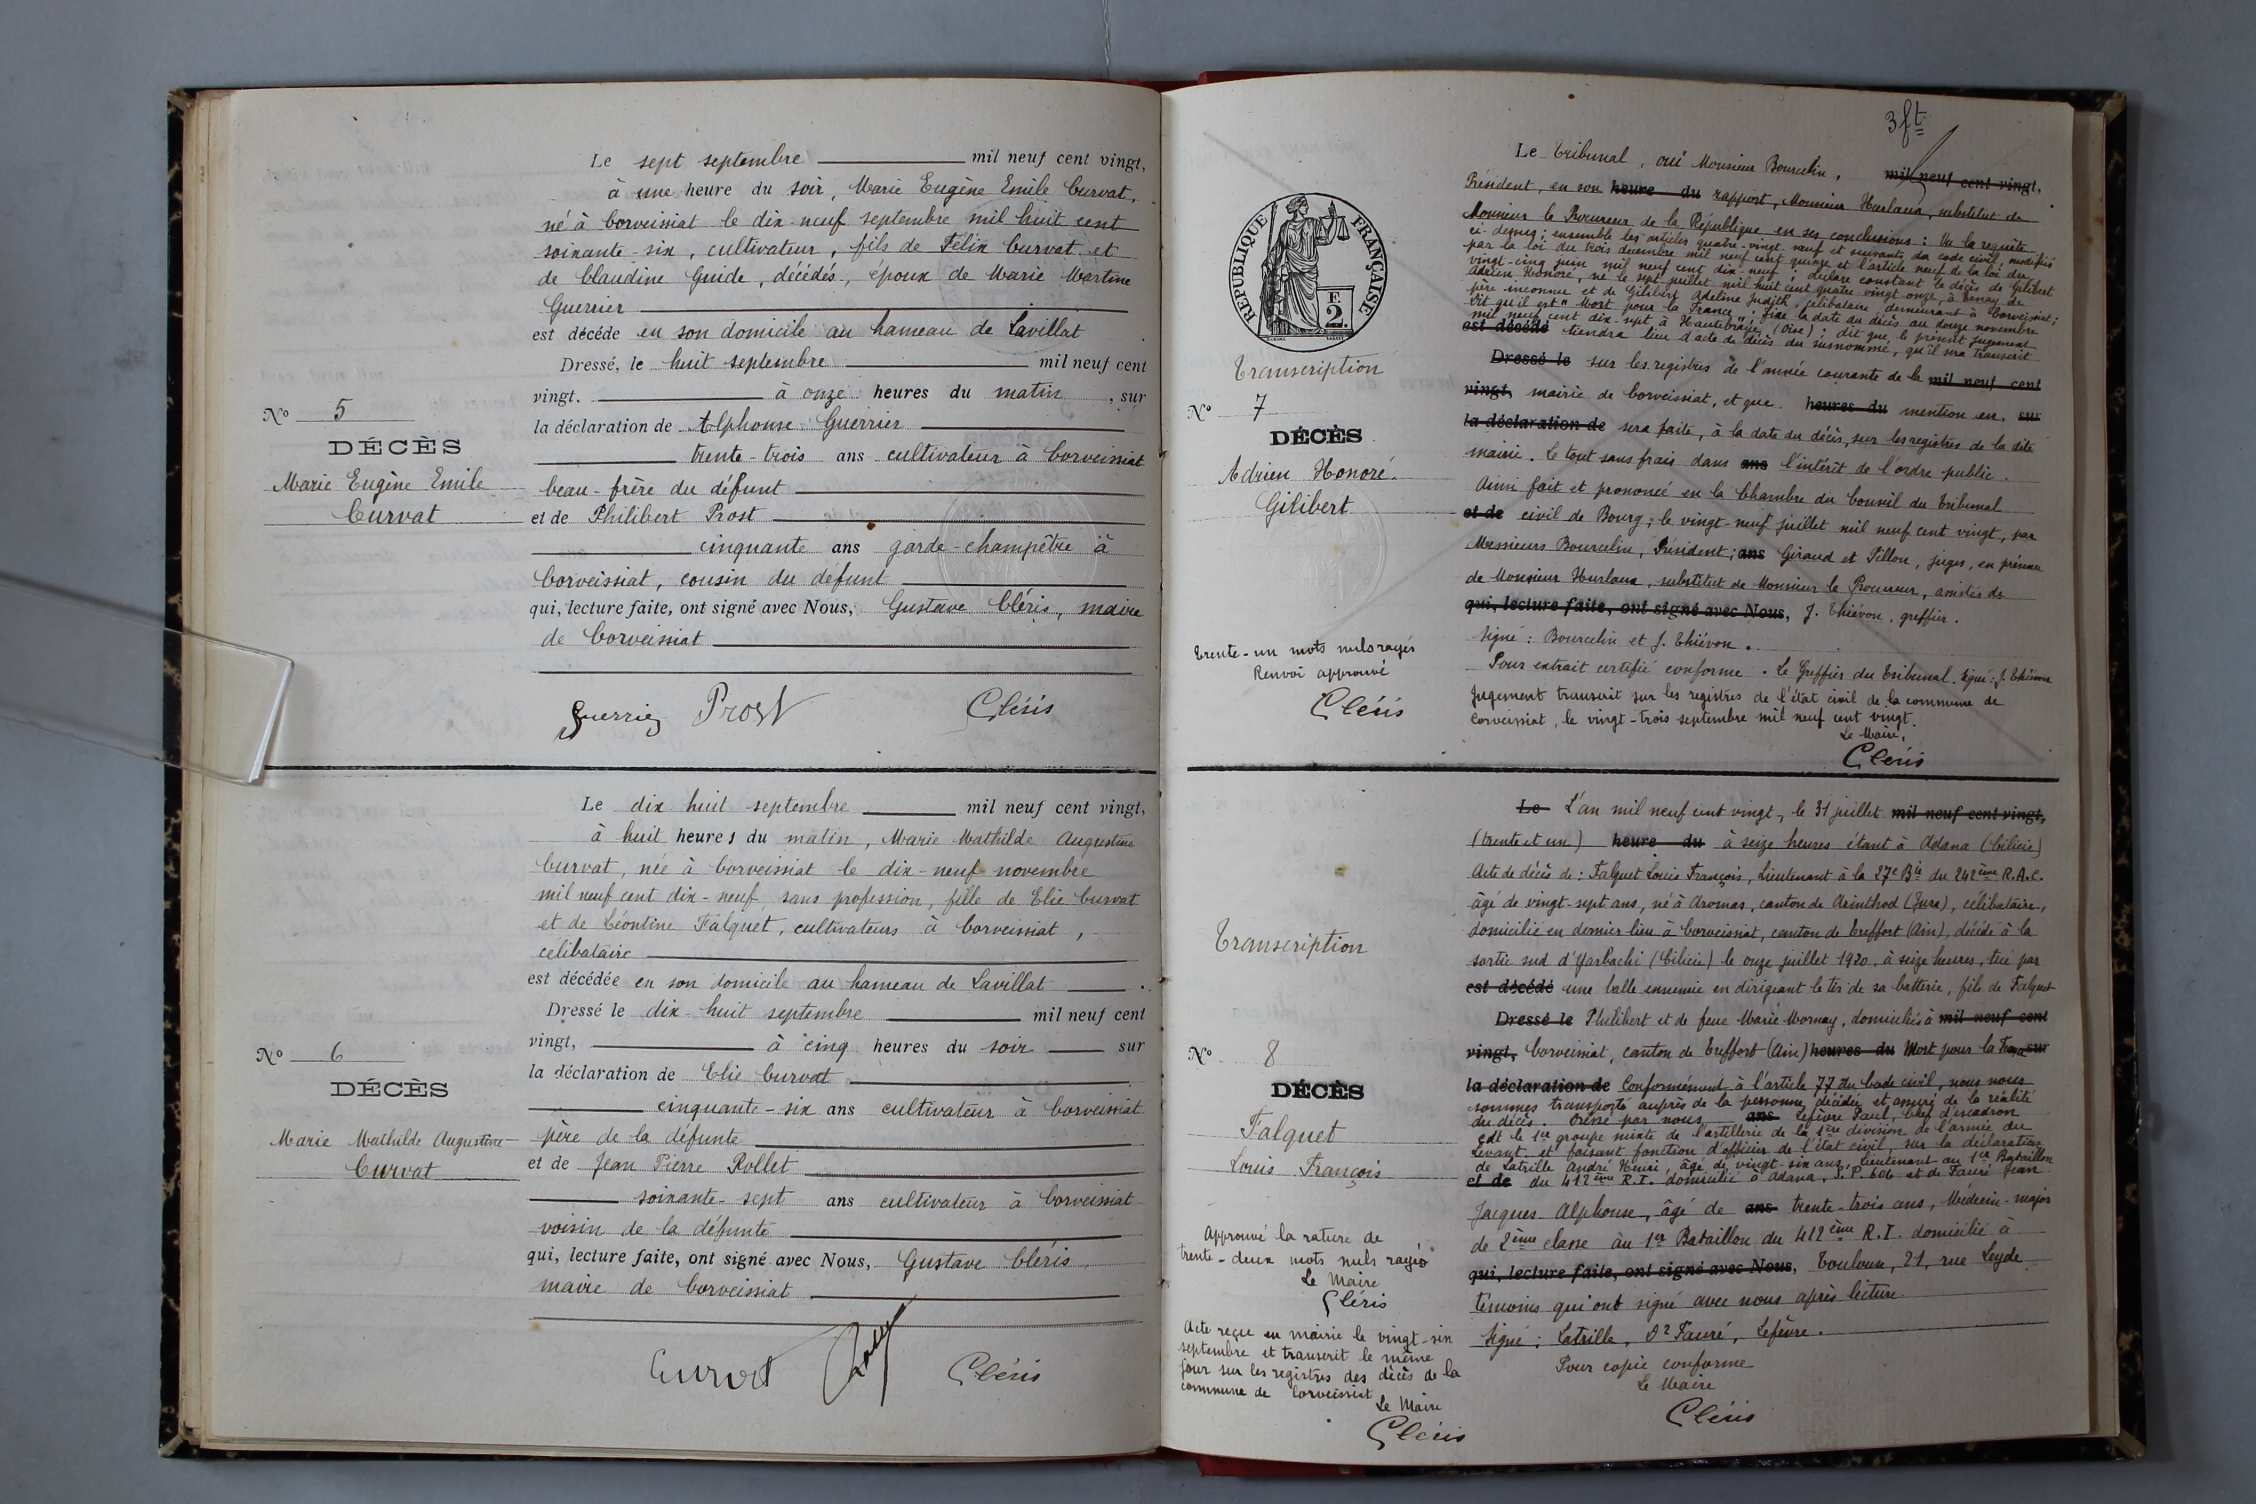 Le sept septembre mil neuf cent vingt,
à une heure du soir, Marie Eugène Emile Curvat,
né à Corveissiat le dix-neuf septembre mil huit cent
soixante-six, cultivateur, fils de Félix Curvat et
de Claudine Guide, décédés, époux de Marie Martine
Guerrier
est décédé en son domicile au hameau de Lavillat
Dressé, le huit septembre mil neuf cent
vingt, à onze heures du matin, sur
la déclaration de Alphonse Guerrier
trente-trois ans cultivateur à Corveissiat
beau-frère du défunt
et de Philibert Prost
cinquante ans garde-champêtre à
Corveissiat, cousin du défunt
qui, lecture faite, ont signé avec Nous, Gustave Cléris, maire
de Corveissiat
Guerrier Prost Cléris
No 5
DÉCÈS
Marie Eugène Emile
Curvat
Le dix huit septembre mil neuf cent vingt,
à huit heures du matin, Marie Mathilde Augustine
Curvat, née à Corveissiat le dix-neuf novembre
mil neuf cent dix-neuf, sans profession, fille de Elie Curvat
et de Léontine Falquet, cultivateurs à Corveissiat,
célibataire
est décédée en son domicile au hameau de Lavillat.
Dressé le dix-huit septembre mil neuf cent
vingt, à cinq heures du soir sur
la déclaration de Elie Curvat
cinquante-six ans cultivateur à Corveissiat
père de la défunte
et de Jean Pierre Rollet
soixante-sept ans cultivateur à Corveissiat
voisin de la défunte
qui, lecture faite, ont signé avec Nous, Gustave Cléris,
maire de Corveissiat
Curvat Cléris
No 6
DÉCÈS
Marie Mathilde Augustine
Curvat
3 ft
RÉPUBLIQUE FRANÇAISE
F.
2
Transcription
No 7
DÉCÈS
Adrien Honoré
Gilibert
Trente-un mots nuls rayés
Renvoi approuvé
Cléris
Le Tribunal, ouï Monsieur Bourcelin, mil neuf cent vingt,
Président, en son heure du rapport, Monsieur substitut de
Monsieur le Procureur de la République en ses conclusions : Vu la requête
ci-dessus ; ensemble les articles quatre-vingt-neuf et suivants du code civil, modifiés
par la loi du trois décembre mil neuf cent quinze et l'article neuf de la loi du
vingt-cinq juin mil neuf cent dix-neuf ; déclare constant le décès de Gilibert
Adrien Honoré, né le sept juillet mil huit cent quatre vingt onze, à de
père inconnu et de Gilibert Adeline Judith, célibataire, demeurant à Corveissiat ;
dit qu'il est "Mort pour la France" ; fixe la date du décès au douze novembre
mil neuf cent dix-sept à Hautebraye, (Oise) ; dit que le présent jugement
est décédé tiendra lieu d'acte de décès du susnommé, qu'il sera transcrit
Dressé le sur les registres de l'année courante de la mil neuf cent
vingt, mairie de Corveissiat, et que heures du mention en sur
la déclaration de sera faite, à la date du décès, sur les registres de la dite
mairie. Le tout sans frais dans ans l'intérêt de l'ordre public.
Ainsi fait et prononcé en la Chambre du Conseil du Tribunal
et de civil de Bourg, le vingt-neuf juillet mil neuf cent vingt, par
Messieurs Bourcelin, Président ; ans Giraud et Pillon, juges, en présence
de Monsieur substitut de Monsieur le Procureur, assistés de
qui, lecture faite, ont signé avec Nous, J. Thiévon, greffier.
Signé : Bourcelin et J. Thiévon.
Pour extrait certifié conforme. Le Greffier du Tribunal. Signé : J. Thiévon
Jugement transcrit sur les registres de l'état civil de la commune de
Corveissiat, le vingt-trois septembre mil neuf cent vingt.
Le Maire,
Cléris
Transcription
No 8
DÉCÈS
Falquet
Louis François
Approuvé la rature de
trente-deux mots nuls rayés
Le Maire
Cléris
Acte reçu en mairie le vingt-six
septembre et transcrit le même
jour sur les registres des décès de la
commune de Corveissiat
Le Maire
Cléris
Le L'an mil neuf cent vingt, le 31 juillet mil neuf cent vingt,
(trente et un) heure du à seize heures étant à Adana (Cilicie)
Acte de décès de : Falquet Louis François, Lieutenant à la 27e Bie du 242ème R.A.C.
âgé de vingt-sept ans, né à Aromas, canton de Arinthod (Jura), célibataire,
domicilié en dernier lieu à Corveissiat, canton de Treffort (Ain), décédé à la
sortie sud d'Yarbachi (Cilicie) le onze juillet 1920, à seize heures, tué par
est décédé une balle ennemie en dirigeant le tir de sa batterie, fils de Falquet
Dressé le Philibert et de feue Marie Mornay, domiciliés à mil neuf cent
vingt, Corveissiat, canton de Treffort (Ain) heures du Mort pour la France sur
la déclaration de Conformément à l'article 77 du Code civil, nous nous
sommes transporté auprès de la personne décédée et assuré de la réalité
du décès. Dressé par nous, ans Lefèvre Paul, Chef d'escadron
cdt le 1er groupe mixte de l'artillerie de la 1ère division de l'armée du
Levant et faisant fonction d'officier de l'état civil, sur la déclaration
de Latrille André Henri, âgé de vingt-six ans, lieutenant au 1er Bataillon
et de du 412ème R.I. domicilié à Adana, S.P. 606 et de Fauré Jean
Jacques Alphonse, âgé de ans trente-trois ans, Médecin-major
de 2ème classe au 1er Bataillon du 412ème R.I. domicilié à
qui, lecture faite, ont signé avec Nous, Toulouse, 21, rue Leyde
témoins qui ont signé avec nous après lecture
Signé : Latrille, Dr Fauré, Lefèvre.
Pour copie conforme
Le Maire
Cléris